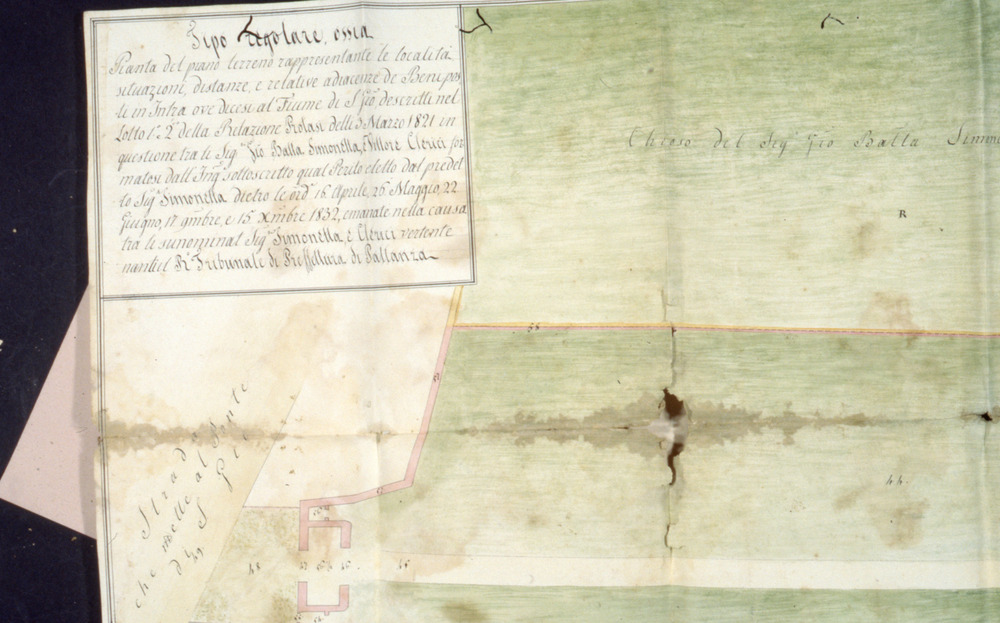 Tipo regolare, ossia
Pianta del piano terreno rappresentante le località,
situazioni, distanze, e relative adiacenze de Beni pos
ti in Intra ove dicesi al Fiume di S. Gio, descritti nel
Lotto 1.º 2.º della Relazione Prolasi delli 3 Marzo 1821 in
questione tra li Sig.ri Gio Batta Simonetta, e Vittore Clerici for
matosi dall'Ing.e sottoscritto qual Perito eletto dal predet
to Sig.r Simonetta dietro le ord.e 16 Aprile, 26 Maggio, 22
Giugno, 17 9mbre, e 15 Xmbre 1832, emanate nella causa
tra li sunominat Sig.ri Simonetta, e Clerici vertente
nanti il R.º Tribunale di Prefettura di Pallanza
Chioso del Sig.r Gio Batta Simone
R
58
44
Strada
che mette al Ponte
di S Gio
49
48
45